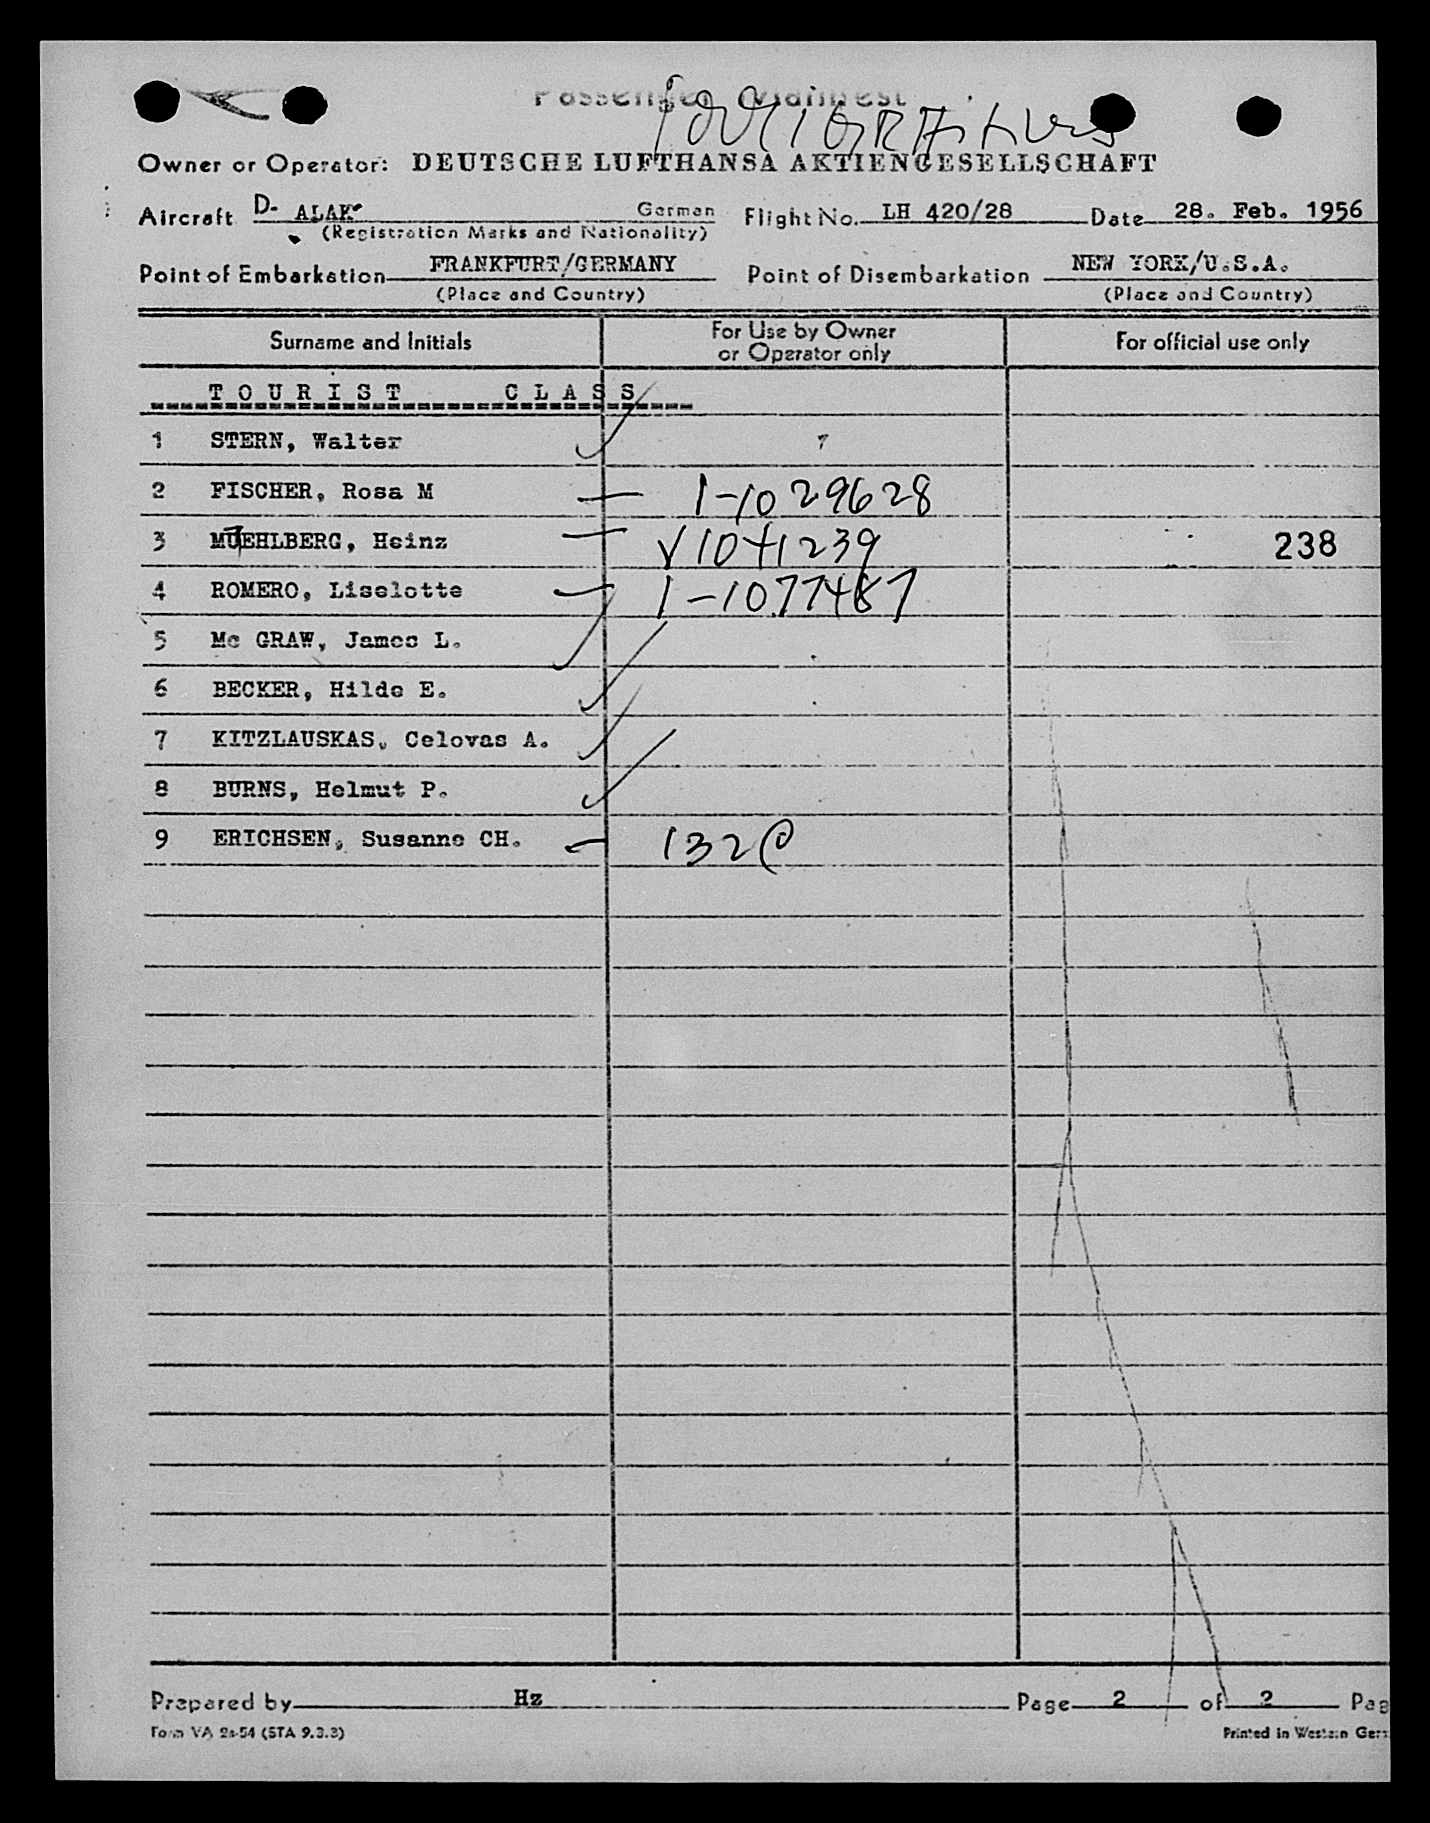 Passenger Manifest
Owner or Operator: DEUTSCHE LUFTHANSA AKTIENGESELLSCHAFT
Aircraft D- ALAK German Flight No. LH 420/28 Date 28. Feb. 1956
(Registration Marks and Nationality)
Point of Embarkation FRANKFURT/GERMANY Point of Disembarkation NEW YORK/U.S.A.
(Place and Country) (Place and Country)
Surname and Initials For Use by Owner or Operator only For official use only
TOURIST CLASS
1 STERN, Walter
2 FISCHER, Rosa M 1-1029628
3 MUEHLBERG, Heinz 238
4 ROMERO, Liselotte 1-1077487
5 Mc GRAW, James L.
6 BECKER, Hilde E.
7 KITZLAUSKAS, Celovas A.
8 BURNS, Helmut P.
9 ERICHSEN, Susanne CH. 132
Prepared by Hz Page 2 of 2 Pag
Form VA 2a-54 (STA 9.3.3) Printed in Western Ger